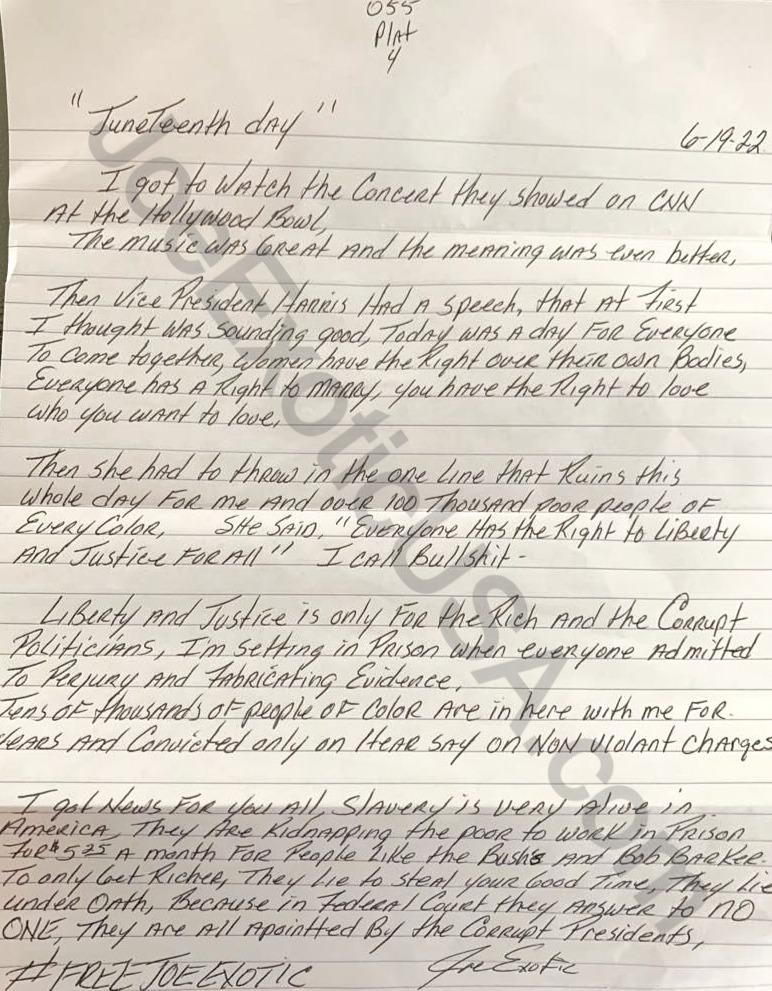 055
Plat
4
"Juneteenth day"
6-19-22
I got to watch the Concert they showed on CNN
At the Hollywood Bowl,
The music was Great and the meaning was even better,
Then Vice President Harris Had A speech, that At first
I thought was sounding good, Today was A day For Everyone
To come together, Women have the Right over their own Bodies,
Everyone has A Right to Marry, you have the Right to love
who you want to love,
Then she had to throw in the one line that Ruins this
whole day For me And over 100 Thousand poor people of
Every Color, She Said, "Everyone Has the Right to Liberty
And Justice For All" I call Bullshit -
Liberty and Justice is only For the Rich And the Corrupt
Politicians, I'm setting in Prison when everyone Admitted
To Perjury And Fabricating Evidence,
Tens of thousands of people of Color Are in here with me For
years And Convicted only on Hear say on Non Violant Charges
I got News For you All, Slavery is very Alive in
America, They Are Kidnapping the poor to work in Prison
For $5.25 A month For People Like the Bush's And Bob Barker
To only Get Richer, They Lie to steal your Good Time, They Lie
under Oath, Because in Federal Court they Answer to NO
ONE, They Are All Apointted By the Corrupt Presidents,
#FREEJOEEXOTIC
Joe Exotic
JoeExoticUSA.com